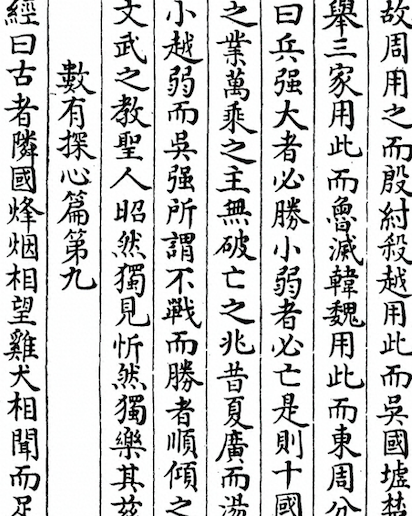 故周用之而殷紂殺越用此而吳國墟楚
舉三家用此而魯滅韓魏用此而東周分
曰兵强大者必勝小弱者必亡是則十國
之業萬乘之主無破亡之兆昔夏廣而湯
小越弱而吳强所謂不戰而勝者順傾之
文武之教聖人昭然獨見忻然獨樂其兹
數有探心篇第九
經曰古者隣國烽烟相望雞犬相聞而足